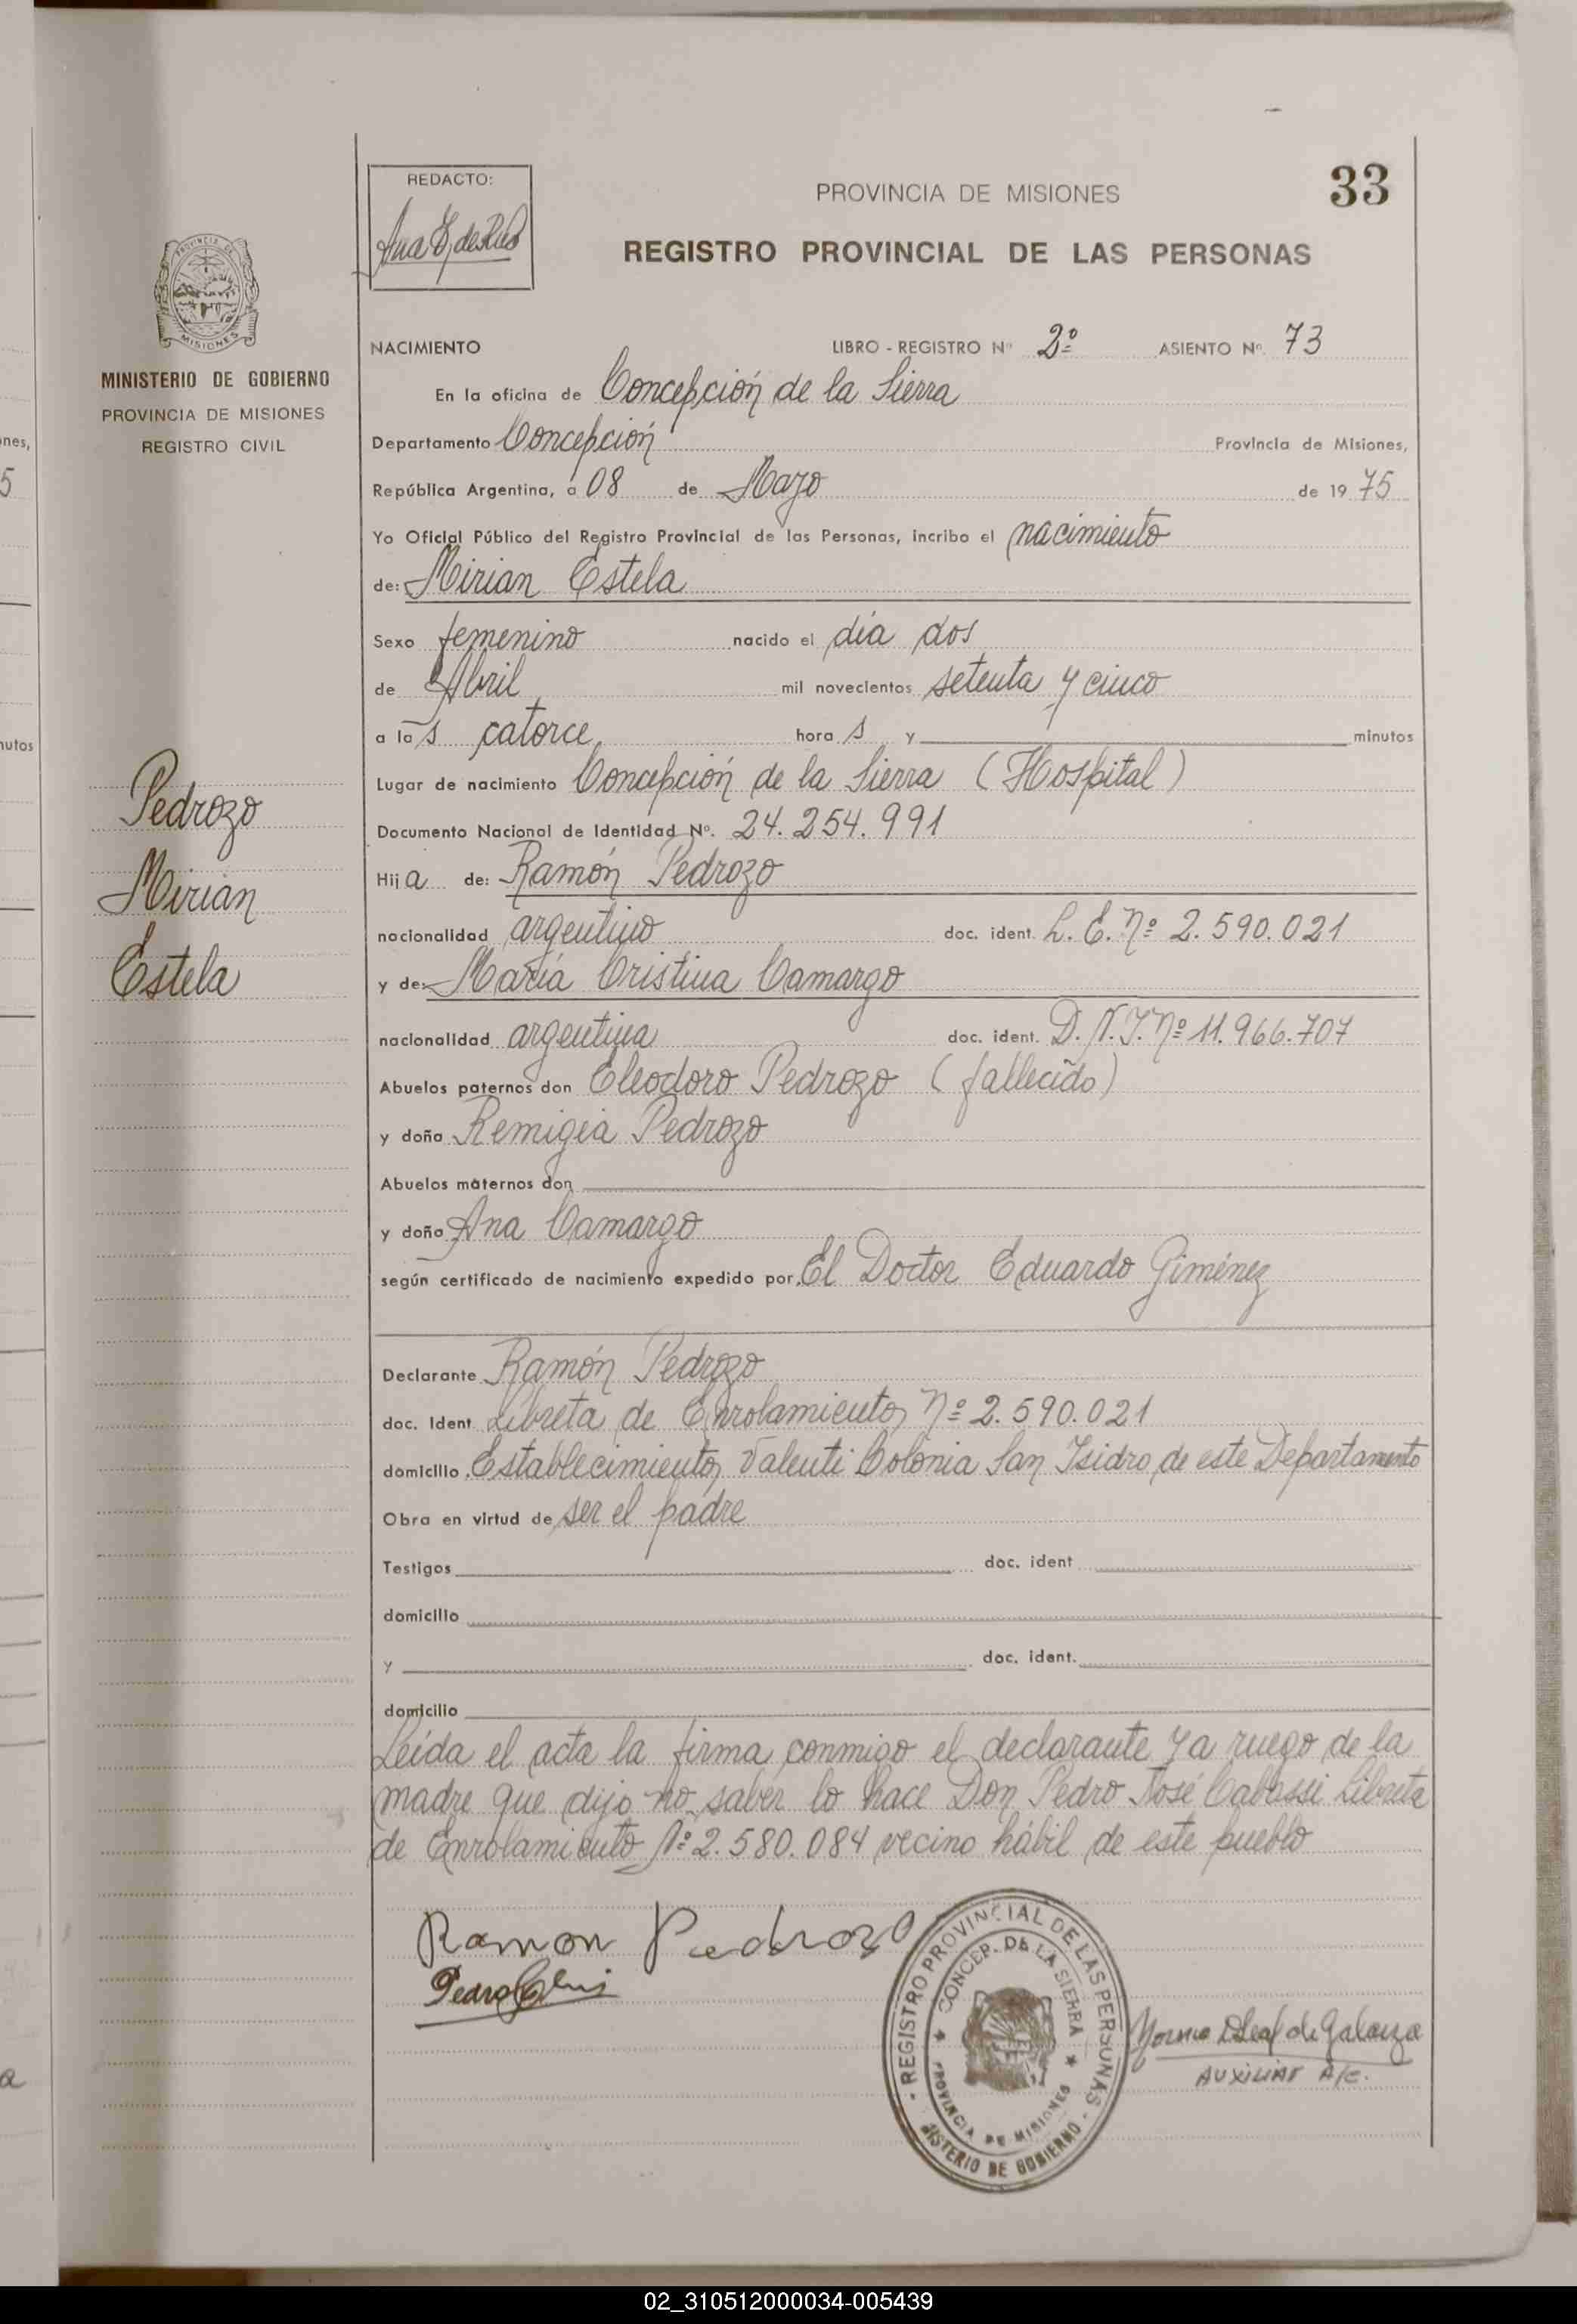 REDACTO:
PROVINCIA DE MISIONES
33
REGISTRO PROVINCIAL DE LAS PERSONAS
PROVINCIA DE
MISIONES
MINISTERIO DE GOBIERNO
PROVINCIA DE MISIONES
REGISTRO CIVIL
NACIMIENTO LIBRO - REGISTRO Nº 2º ASIENTO Nº 73
En la oficina de Concepción de la Sierra
Departamento Concepción Provincia de Misiones,
República Argentina, a 08 de Mayo de 1975
Yo Oficial Público del Registro Provincial de las Personas, incribo el nacimiento
de: Mirian Estela
Sexo femenino nacido el día dos
de Abril mil novecientos setenta y cinco
a las catorce horas y minutos
Lugar de nacimiento Concepción de la Sierra (Hospital)
Documento Nacional de Identidad Nº. 24.254.991
Hija de: Ramón Pedrozo
nacionalidad argentino doc. ident. L. E. Nº 2.590.021
y de: María Cristina Camargo
nacionalidad argentina doc. ident. D. N. I. Nº 11.966.707
Abuelos paternos don Eleodoro Pedrozo (fallecido)
y doña Remigia Pedrozo
Abuelos maternos don
y doña Ana Camargo
según certificado de nacimiento expedido por El Doctor Eduardo Giménez
Pedrozo
Mirian
Estela
Declarante Ramón Pedrozo
doc. Ident Libreta de Enrolamiento Nº 2.590.021
domicilio Establecimiento Valenti Colonia San Isidro de este Departamento
Obra en virtud de ser el padre
Testigos doc. ident
domicilio
y doc. ident.
domicilio
Leída el acta la firma conmigo el declarante y a ruego de la
madre que dijo no saber lo hace Don Pedro José Libreta
de Enrolamiento Nº 2.580.084 vecino hábil de este pueblo
Ramon Pedrozo
Pedro
REGISTRO PROVINCIAL DE LAS PERSONAS
CONCEP. DE LA SIERRA
PROVINCIA DE MISIONES
NISTERIO DE GOBIERNO
de Galarza
AUXILIAR A/C.
nes,
5
nutos
a
02_310512000034-005439